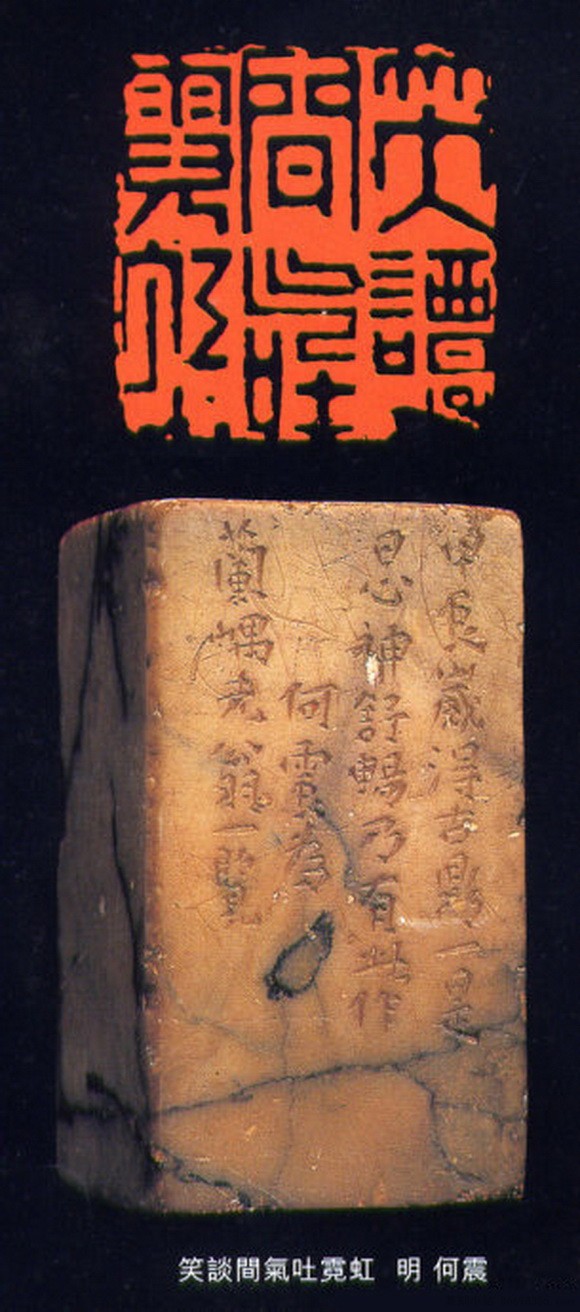 笑譚
間气吐
霓虹
甲辰歲得古鼎一是
日心神舒暢乃有此作
何震為
蘭嵎老翁一覽
笑談間氣吐霓虹 明 何震